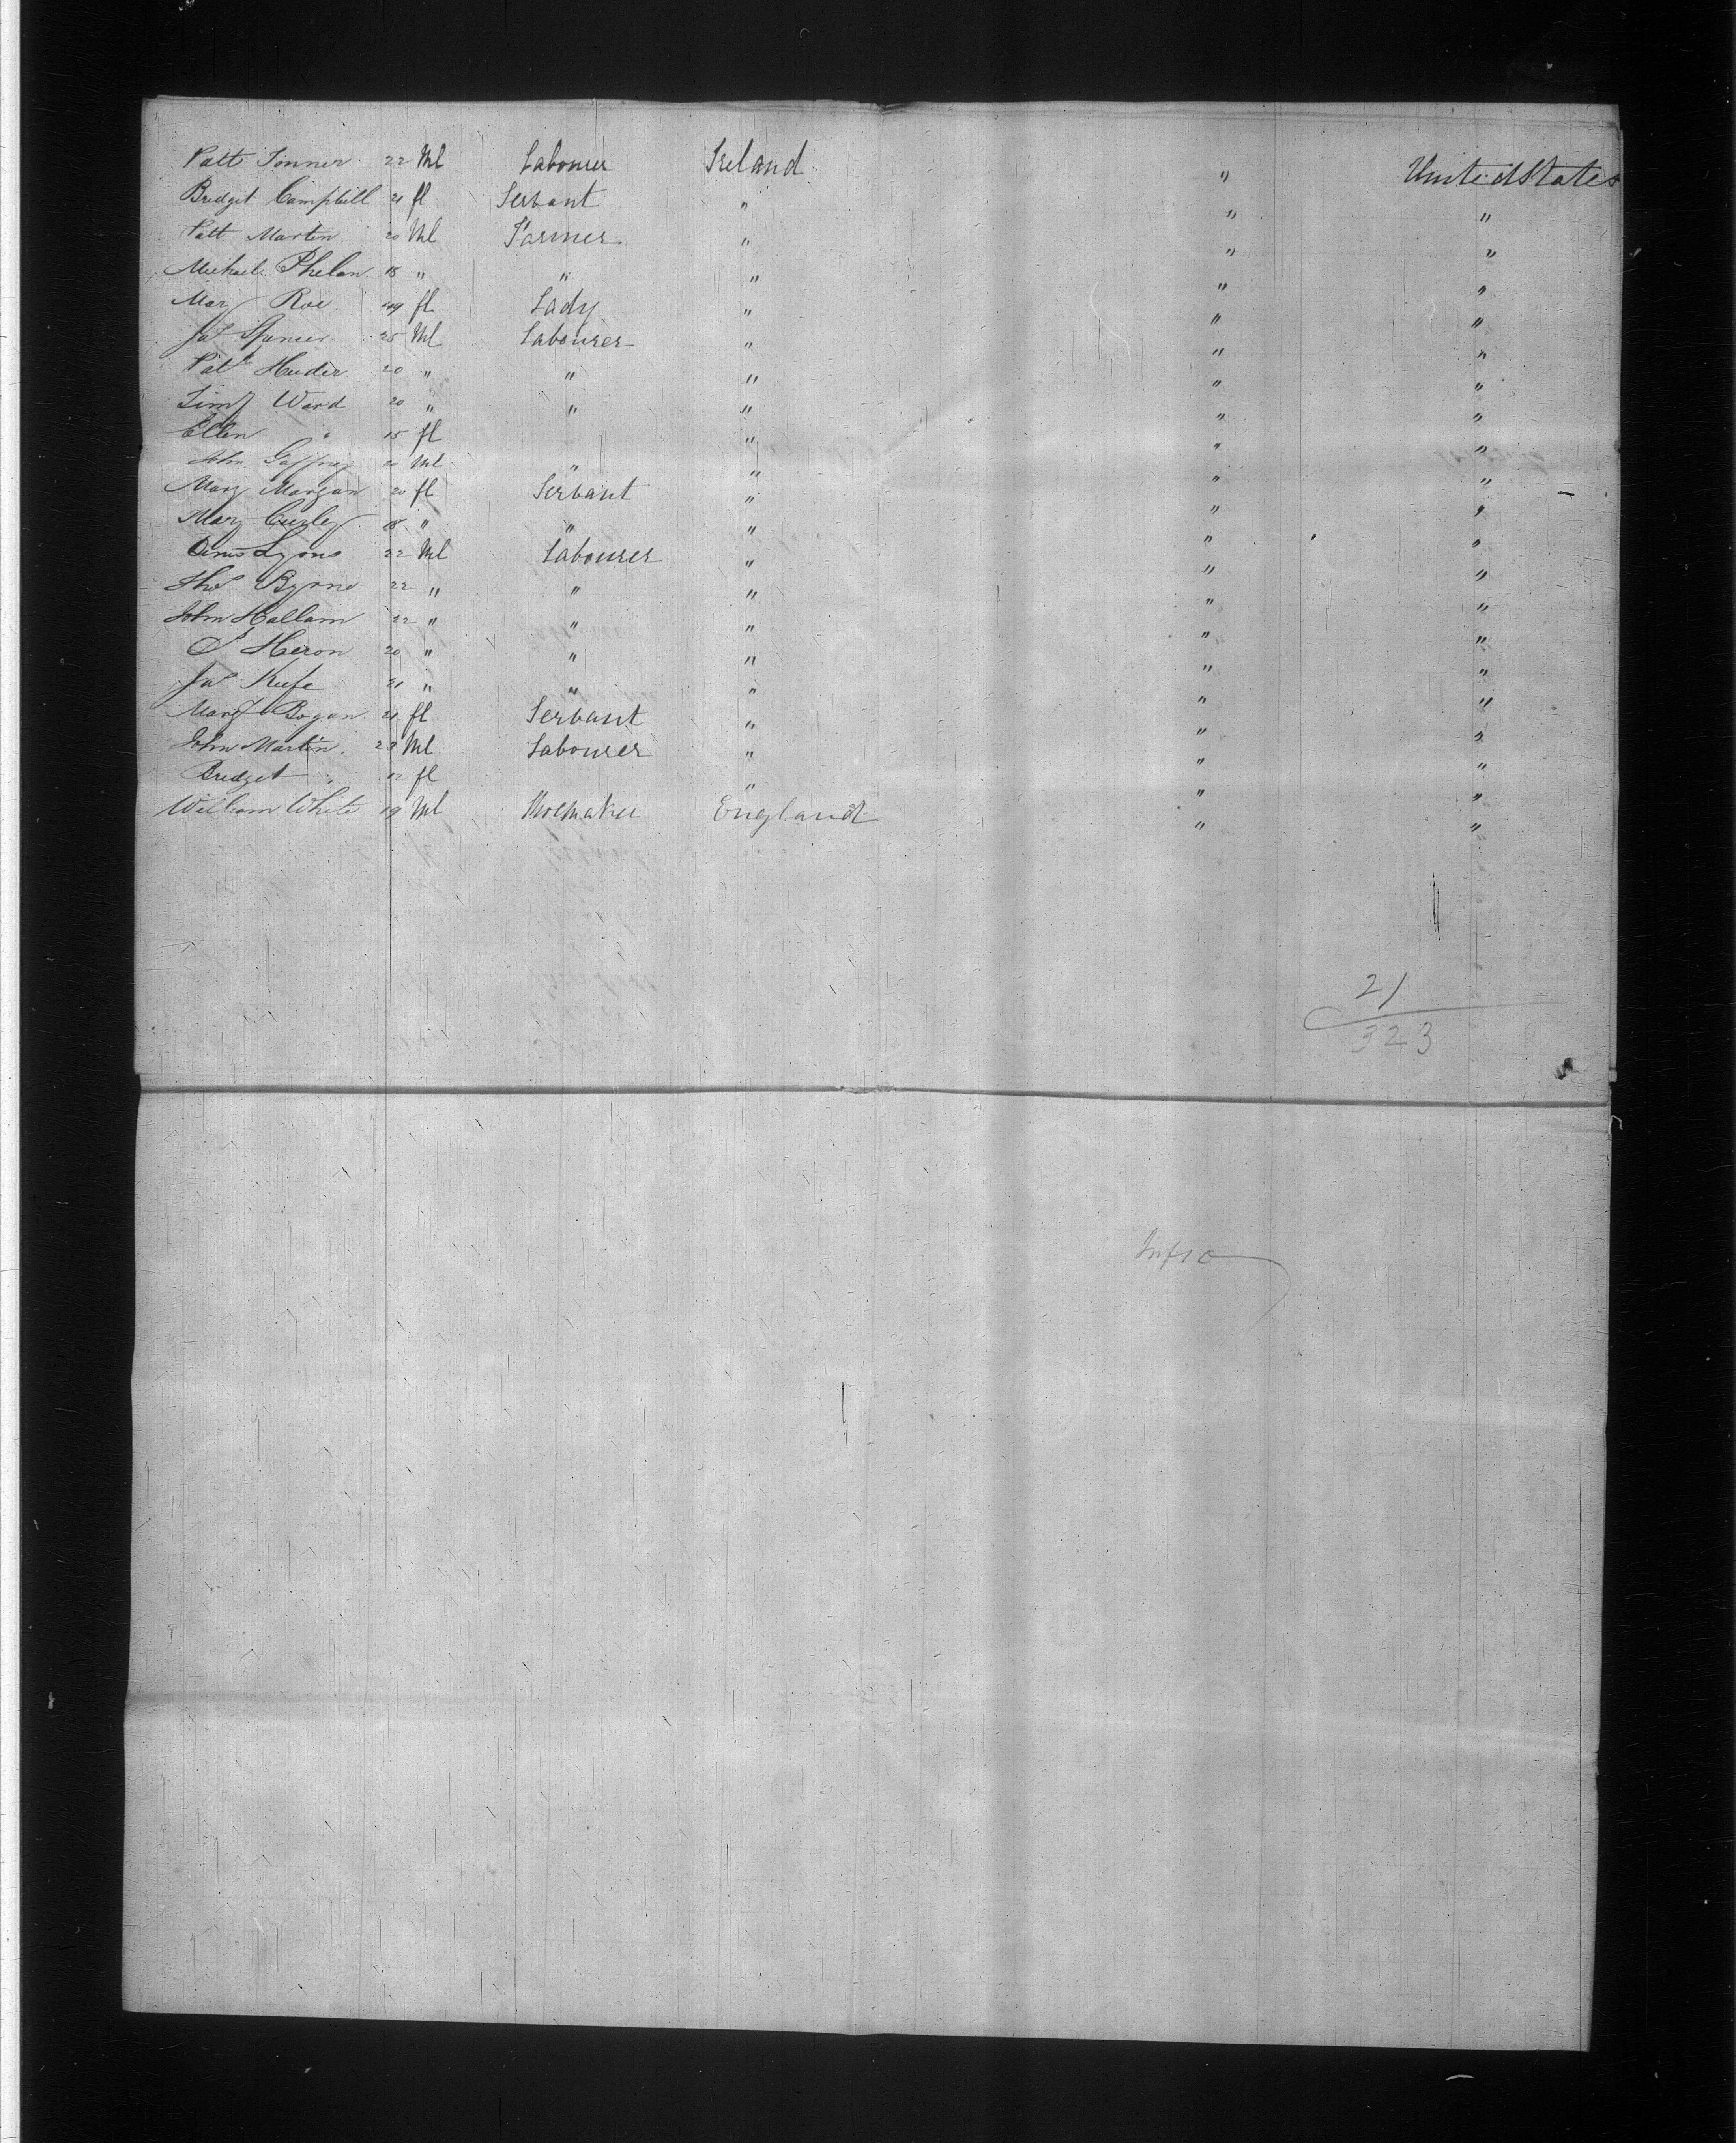 Patt Tonner 22 Ml Labourer Ireland " United States
Bridget Campbell 21 fl Servant " " "
Patt Martin 20 Ml Farmer " " "
Michael Phelan 18 " " " " "
Mary Roe 19 fl Lady " " "
Jas Spencer 25 Ml Labourer " " "
Patk Huder 20 " " " " "
Timy Ward 20 " " " " "
Ellen " 15 fl " " "
John Gaffney 20 Ml " " " "
Mary Morgan 20 fl Servant " " "
Mary Curley 18 " " " " "
Lyons 22 Ml Labourer " " "
Thos Byrne 22 " " " " "
John Hallam 22 " " " " "
Heron 20 " " " " "
Jas Keefe 21 " " " " "
Margt Bogan 21 fl Servant " " "
John Martin 23 Ml Labourer " " "
Bridget " 12 fl " " "
William White 19 Ml Shoemaker England " "
21
323